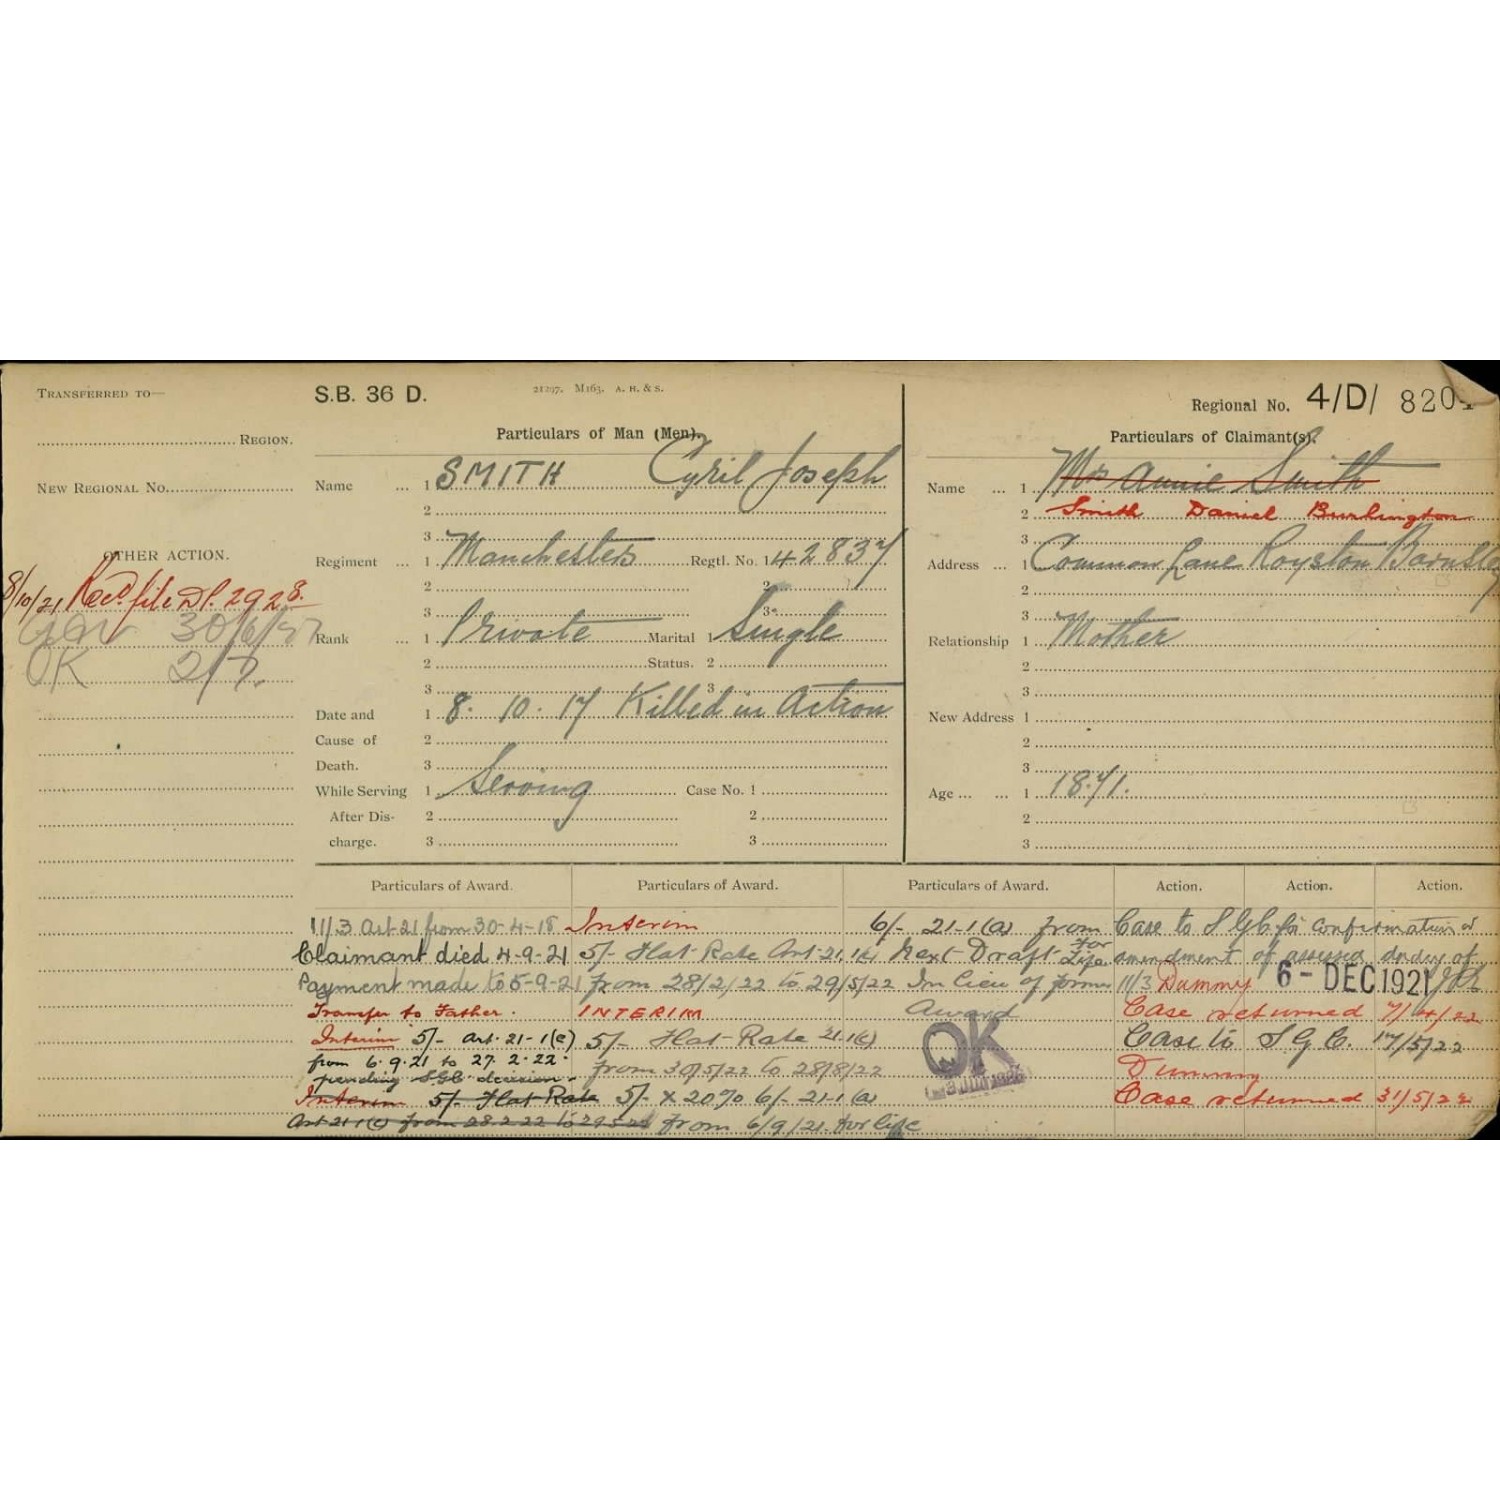 TRANSFERRED TO—
REGION.
NEW REGIONAL NO.
OTHER ACTION.
8/10/21 Recd. file D/. 2928.
30/6/
OK 2/7.
S.B. 36 D.
21297. M163. A. H. & S.
Particulars of Man (Men).
Name ... 1 SMITH Cyril Joseph
2
3
Regiment ... 1 Manchesters Regtl. No. 1 42837
2 2
3 3
Rank ... 1 Private Marital 1 Single
2 Status. 2
3 3
Date and 1 8. 10. 17 Killed in Action
Cause of 2
Death. 3
While Serving 1 Serving Case No. 1
After Dis- 2 2
charge. 3 3
Regional No. 4/D/ 8204
Particulars of Claimant(s).
Name ... 1 Mrs Annie Smith
2 Smith Daniel Burlington
3
Address ... 1 Common Lane Royston Barnsley
2
3
Relationship 1 Mother
2
3
New Address 1
2
3
Age ... ... 1 1871.
2
3
Particulars of Award.
11/3 Art 21 from 30-4-18
Claimant died 4-9-21
Payment made to 5-9-21
Transfer to Father.
Interim 5/- Art. 21-1(c)
from 6.9.21 to 27.2.22.
pending SGC decision.
Interim 5/- Flat Rate
Art 21 1(c) from 28.2.22 to 29.5.22
Particulars of Award.
Interim
5/- Flat Rate Art. 21.1(c)
from 28/2/22 to 29/5/22
INTERIM
5/- Flat Rate 21.1(c)
from 30/5/22 to 28/8/22
5/- x 20% 6/- 21-1(a)
from 6/9/21. for life
Particulars of Award.
6/- 21-1(a) from
Next Draft for Life
In lieu of former
Award
OK
Action. Action. Action.
Case to SGC for confirmation or
amendment of assessed depdcy of
11/3 Dummy 6 - DEC 1921
Case returned 7/4/22
Case to S G C. 17/5/22
Dummy
Case returned 31/5/22